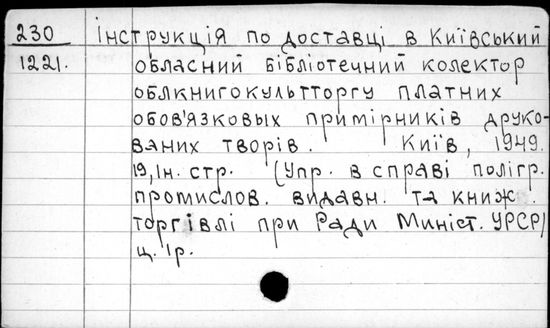 230 Інструкція по доставці в Київський
1221. обласний бібліотечний колектор
облкнигокультторгу платних
обов'язкових примірників друко-
ваних творів. Київ, 1949.
19, Ін. стр. (Упр. в справі полігр.
промислов. видавн. та книж.
торгівлі при Ради Миніст. УРСР)
ц. Ір.